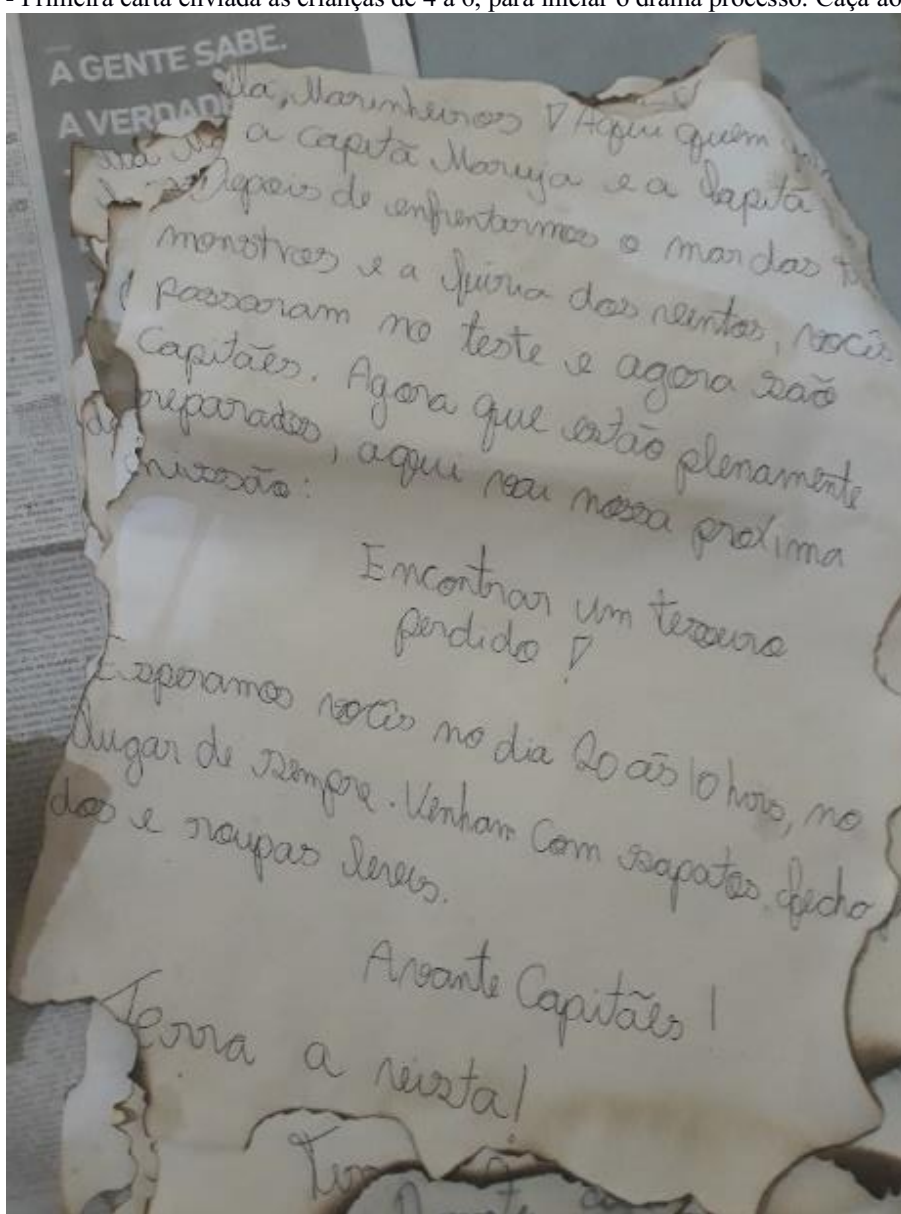 - Primeira carta enviada às crianças de 4 a 6, para iniciar o drama processo: Caça ao
A GENTE SABE.
A VERDADE
Olá, Marinheiros! Aqui quem
a capitã Maruja e a Capitã
Depois de enfrentarmos o mar dos
monstros e a fúria dos ventos, vocês
passaram no teste e agora são
Capitães. Agora que estão plenamente
preparados, aqui vai nossa proxima
missão:
Encontrar um tesouro
perdido!
Esperamos vocês no dia 20 às 10 hors, no
lugar de sempre. Venham com sapatos fecha
dos e roupas leves.
Avante Capitães!
Terra a vista!